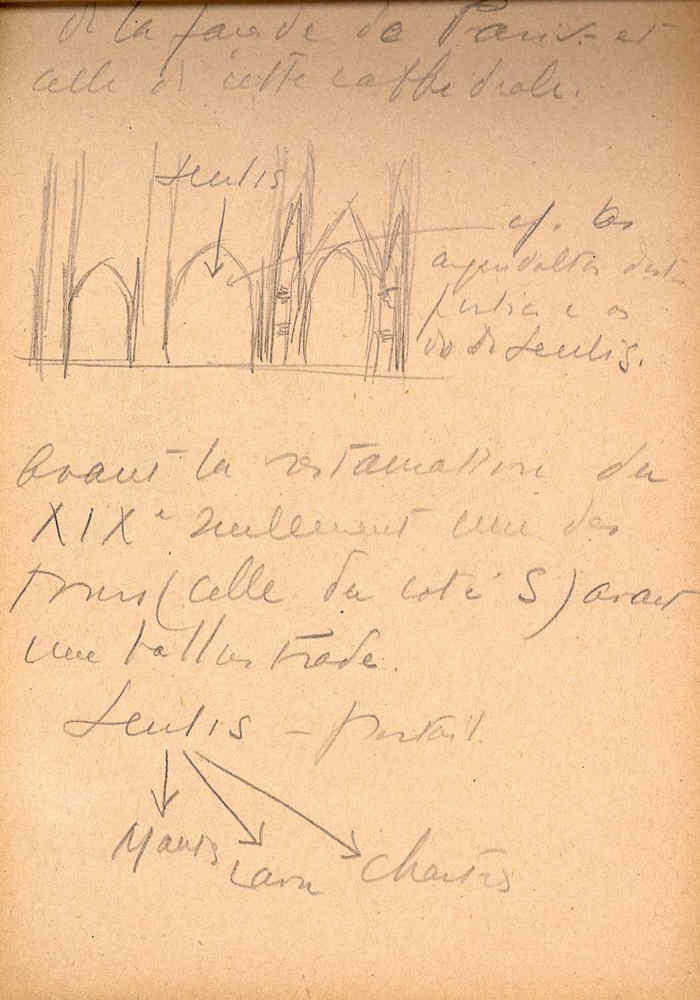 de la façade de Paris et
celle de cette cathédrale.
Senlis
cf. les
de Senlis.
Avant la restauration du
XIXe seulement une des
tours (celle du coté S) avait
une ballustrade.
Senlis – portail.
Mantes
Laon
Chartres